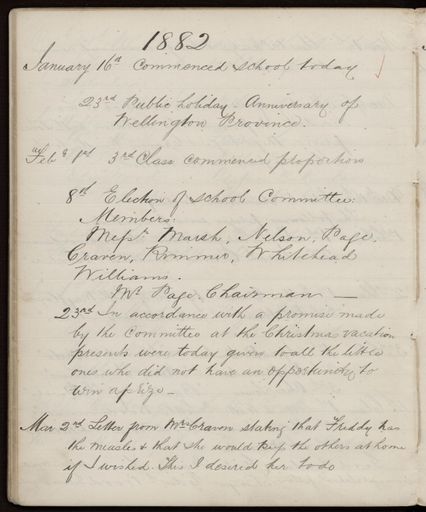 1882
January 16th Commenced school today
23rd Public holiday - Anniversary of
Wellington Province.
Feby 1st 3rd Class commenced proportion
8th Election of School Committee:
Members:
Messrs Marsh, Nelson, Page,
Craven, Rimmer, Whitehead
Williams.
Mr Page. Chairman —
23rd In accordance with a promise made
by the Committee at the Christmas vacation
presents were today given to all the little
ones who did not have an opportunity to
win a prize —
Mar 2nd Letter from Mrs Craven stating that Freddy has
the measles & that she would keep the others at home
if I wished. This I desired her to do